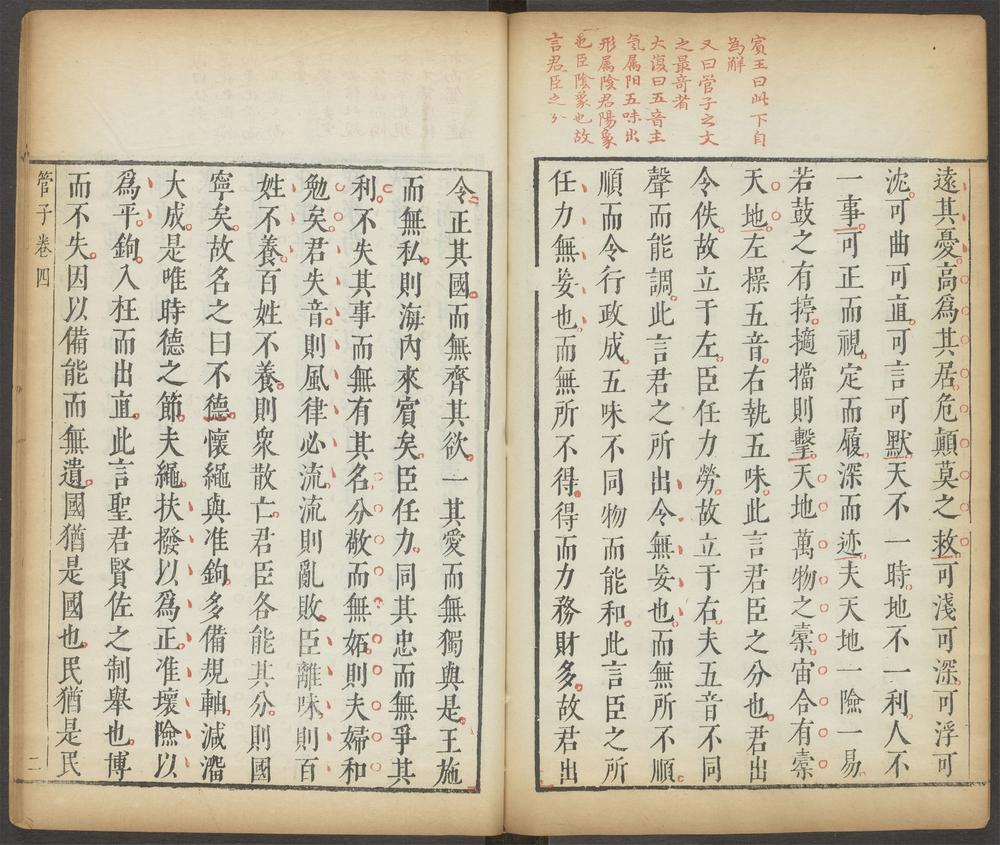 賓王曰此下自
為解
又曰管子之文
之最奇者
大復曰五音主
氣屬阳五味出
形屬陰君陽象
也臣陰象也故
言君臣之分
遠其憂高爲其居危顛莫之救可淺可深可浮可
沈可曲可直可言可默天不一時地不一利人不
一事可正而視定而履深而迹夫天地一險一易
若鼓之有㨪擿擋則擊天地萬物之橐宙合有橐
天地左操五音右執五味此言君臣之分也君出
令佚故立于左臣任力勞故立于右夫五音不同
聲而能調此言君之所出令無妄也而無所不順
順而令行政成五味不同物而能和此言臣之所
任力無妄也而無所不得得而力務財多故君出
令正其國而無齊其欲一其愛而無獨與是王施
而無私則海內來賓矣臣任力同其忠而無爭其
利不失其事而無有其名分敬而無妬則夫婦和
勉矣君失音則風律必流流則亂敗臣離味則百
姓不養百姓不養則衆散亡君臣各能其分則國
寧矣故名之曰不德懷繩與准鉤多備規軸減溜
大成是唯時德之節夫繩扶撥以爲正准壞險以
爲平鉤入枉而出直此言聖君賢佐之制舉也博
而不失因以備能而無遺國猶是國也民猶是民
管子卷四
二